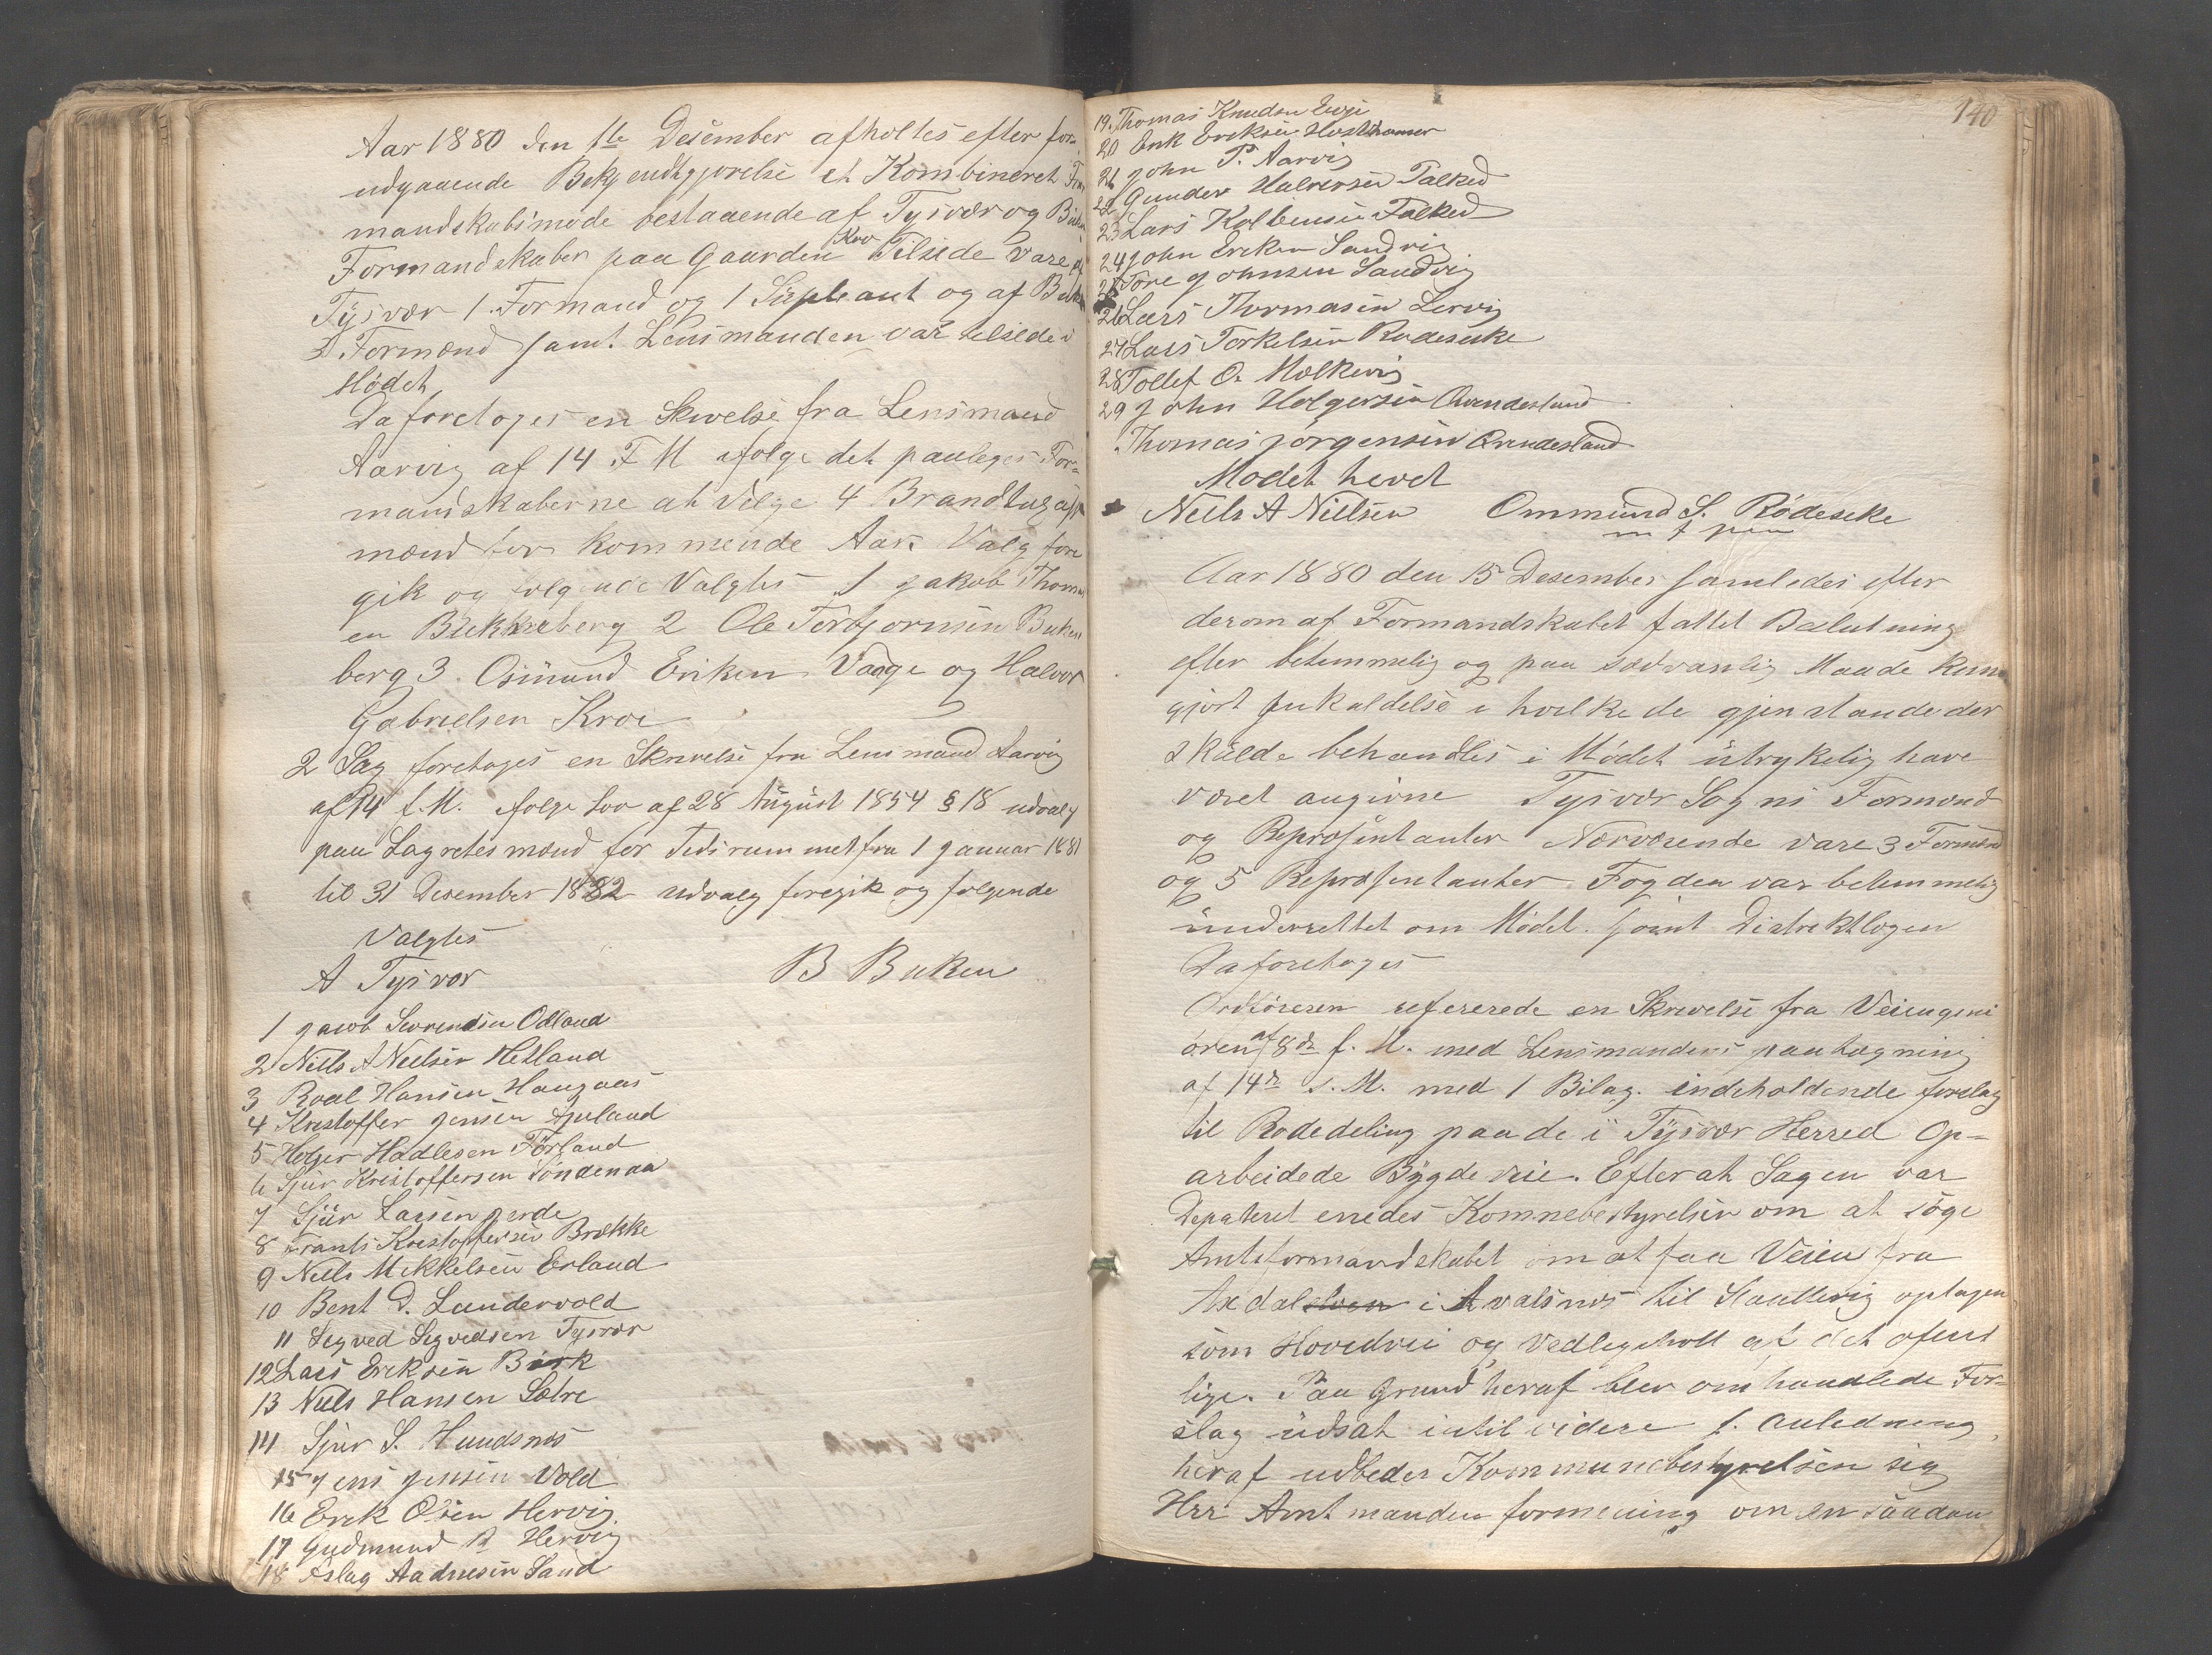 Aar 1880 den 1te Desember afholtes efter for-
udgaaende Bekjendtgjørelse et Kombineret For
mandskabsmøde bestaaende af Tysvær og Buken
Formandskaber paa Gaarden Kro Tilsede vare af
Tysvær 1 Formand og 1 Supleant og af Buken
3 Formænd samt Lensmanden var telsede i
Mødet
Da foretoges en Skrivelse fra Lensmand
Aarvig af 14 F M ifølge det paaleges For-
mandskaberne at Vælge 4 Brandtugafs
mænd for kommende Aar. Valg fore
gik og følgende Valgtes 1 Jakob Thomas
en Bukkeberg 2 Ole Torbjornsen Buken
berg 3. Osmund Eriksen Vaage og Halvor
Gabrielsen Kroe
2 Sag foretoges en Skrivelse fra Lensmand Aarvig
af 14 f.M. ifølge Lov af 28 August 1854 § 18 udvalg
paa Lagretesmænd for Tidsrummet fra 1 Januar 1881
til 31 Desember 1882 udvalg foregik og følgende
Valgtes
A Tysvær
B Buken
1 Jacob Sevrendsen Odland
2 Niels A Nielsen Hetland
3 Roal Hansen Haugaas
4 Kristoffer Jensen Apeland
5 Holger Hadlesen Førland
6 Sjur Kristoffersen Søndenaa
7 Sjur Larsen Gjerde
8 Frants Kristoffersen Brække
9 Niels Mikkelsen Erland
10 Bent D. Landervold
11 Sigved Sigvedsen Tysvær
12 Lars Eriksen Birk
13 Niels Hansen Sætre
14 Sjur S. Hundsnes
15 Jens Jensen Vold
16 Erik Olsen Hervig
17 Gudmund R Hervig
18 Aslag Aadnesen Sand
140
19. Thomas Knudsen Eveje
20 Erik Eriksen Hesthammer
21 John T. Aarvig
22 Gunder Halversen Falked
23 Lars Kolbensen Falked
24 John Eriksen Sandvig
25 Tore Johnsen Sandvig
26 Lars Thormasen Lervig
27 Lars Torkelsen Rødeseike
28 Tollef O. Molkevig
29 John Holgersen Avendesland
Thomas Jørgensen Avendesland
Mødet hevet
Neils A Nielsen Ommund S. Rødeseke
m f pen
Aar 1880 den 15 Desember samledes efter
derom af Formandskabet fattet Beslutning
efter betimmelig og paa sædvanlig Maade kun
gjort Inkaldelse i hvilke de gjenstande der
skulde behandles i Mødet utrykelig have
været angivne Tysvær Sogns Formænd
og Repræsentanter Nærværende vare 3 Formænd
og 5 Repræsentanter Fogden var betimmelig
underrettet om Mødet. samt Distriktlægen
Da foretoges
Ordføreren refererede en Skrivelse fra Veiingeni
øren af 8de f. M. med Lensmandens paategning
af 14de s. M. med 1 Bilag. indeholdende forslag
til Rodedeling paa de i Tysvær Herred Op-
arbeidede Bygdeveie. Efter at Sagen var
Depateret enedes Komnebestyrelsen om at søge
Amtsformandskabet om at faa Veien fra
Axdal i Avalsnes til Haettevig optagen
som Hovedvei og Vedligeholt af det ofent
lige. Paa Grund heraf blev omhandlede For-
slag udsat intil videre f. anledning
heraf udbeder Kommunebestyrelsen sig
Hrr Amtmanden formening om en saadan